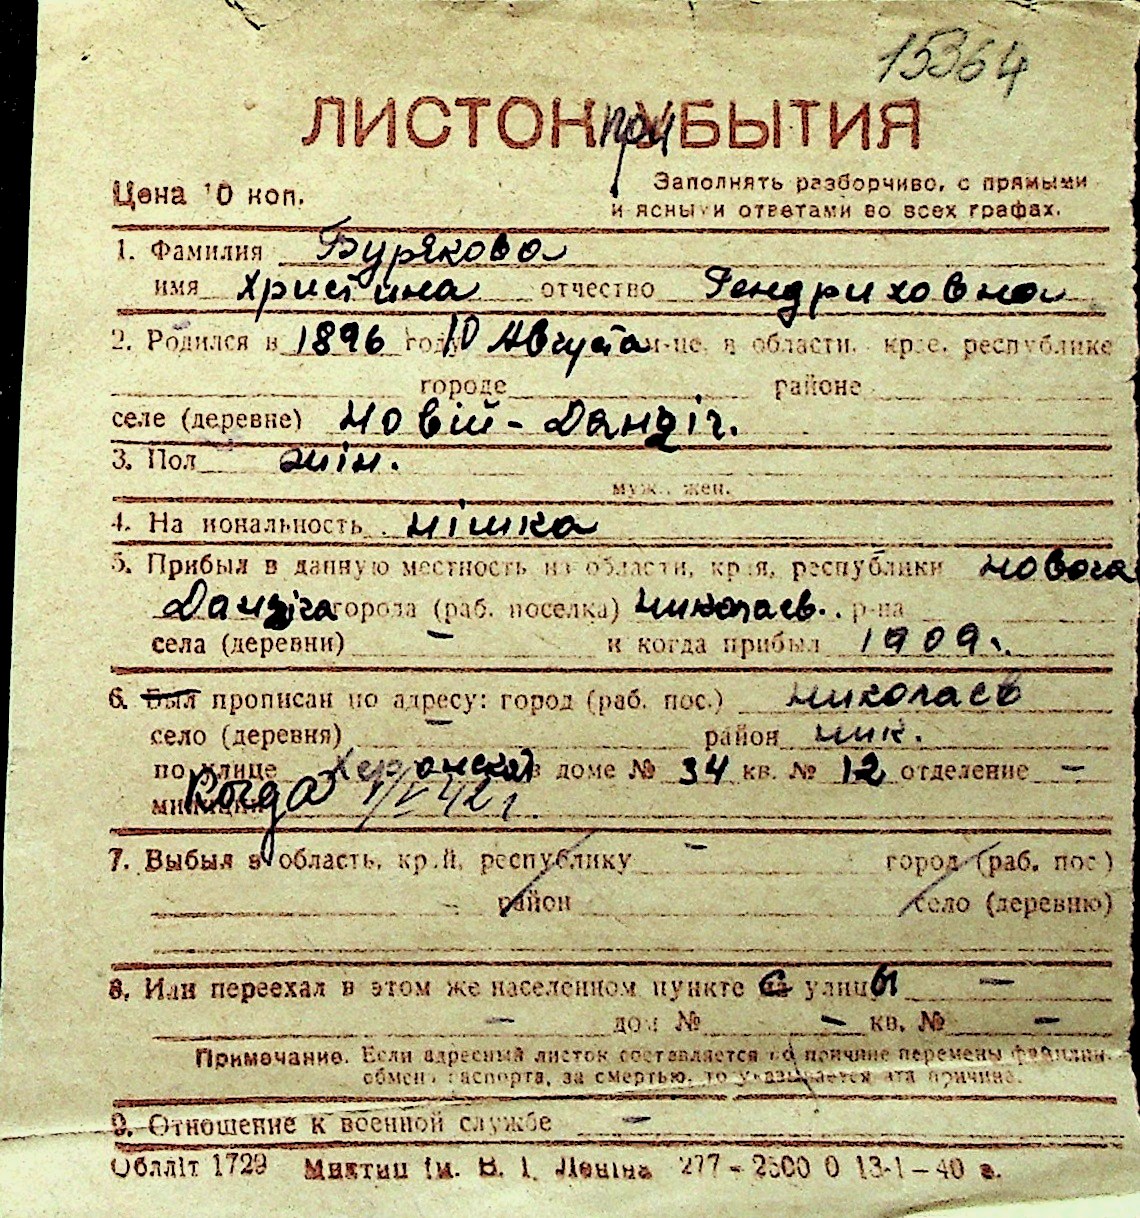 15364
ЛИСТОК прибЫТИЯ
Цена 10 коп.
Заполнять разборчиво, с прямыми
и ясными ответами во всех графах.
1. Фамилия Бурякова
имя Христина отчество Гендриховна
2. Родился в 1896 году 10 Августа м-це, в области, крае, республике
городе районе
селе (деревне) Новій-Данзіг.
3. Пол жін.
муж., жен.
4. Национальность німка
5. Прибыл в данную местность из области, края, республики Нового
Данзіга города (раб. поселка) Николаев. р-на
села (деревни) – и когда прибыл 1909 г.
6. Был прописан по адресу: город (раб. пос.) Николаев
село (деревня) – район ник.
по улице Херсонской в доме № 34 кв. № 12 отделение –
милиции Когда 42 г.
7. Выбыл в область, край, республику – город (раб. пос.)
район село (деревню)
8. Или переехал в этом же населенном пункте с улицы –
– дом № – кв. № –
Примечание. Если адресный листок составляется по причине перемены фамилии,
обмена паспорта, за смертью, то указывается эта причина.
9. Отношение к военной службе –
Облліт 1729 ім. В. І. Леніна 277 – 2500 0 13-1-40 г.